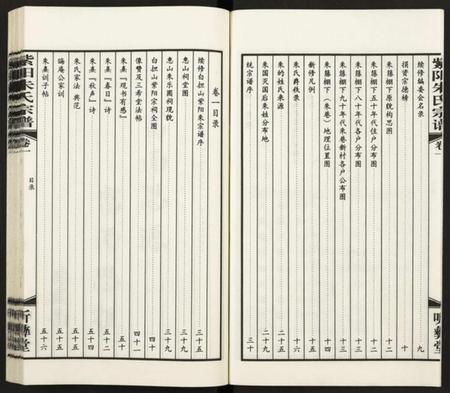 紫阳朱氏宗谱
卷一
听彝堂
续修编委会名录 九
捐资宗德榜 十
朱藤棚下原貌构思图 十二
朱藤棚下五十年代住户分布图 十二
朱藤棚下八十年代各户分布图 十三
朱藤棚下九十年代朱巷新村各户公布图 十三
朱藤棚下（朱巷）地理位置图 十四
新修凡例 十五
朱氏爵秩录 十六
朱的姓氏来源 二十九
朱国灭国后朱姓分布地 二十九
统宗谱序 三十
卷一目录
续修白担山紫阳朱宗谱序 三十五
惠山祠堂图 三十九
惠山朱乐圃祠现貌 三十九
白担山紫阳宗祠全图 四十
像赞及三希堂法帖 四十一
朱熹『观书有感』 五十
朱熹『春日』诗 五十二
朱熹『秋声』诗 五十四
朱氏家法 典范 五十五
晦庵公家训 五十五
朱熹训子帖 五十六
紫阳朱氏宗谱
卷一
目录
听彝堂